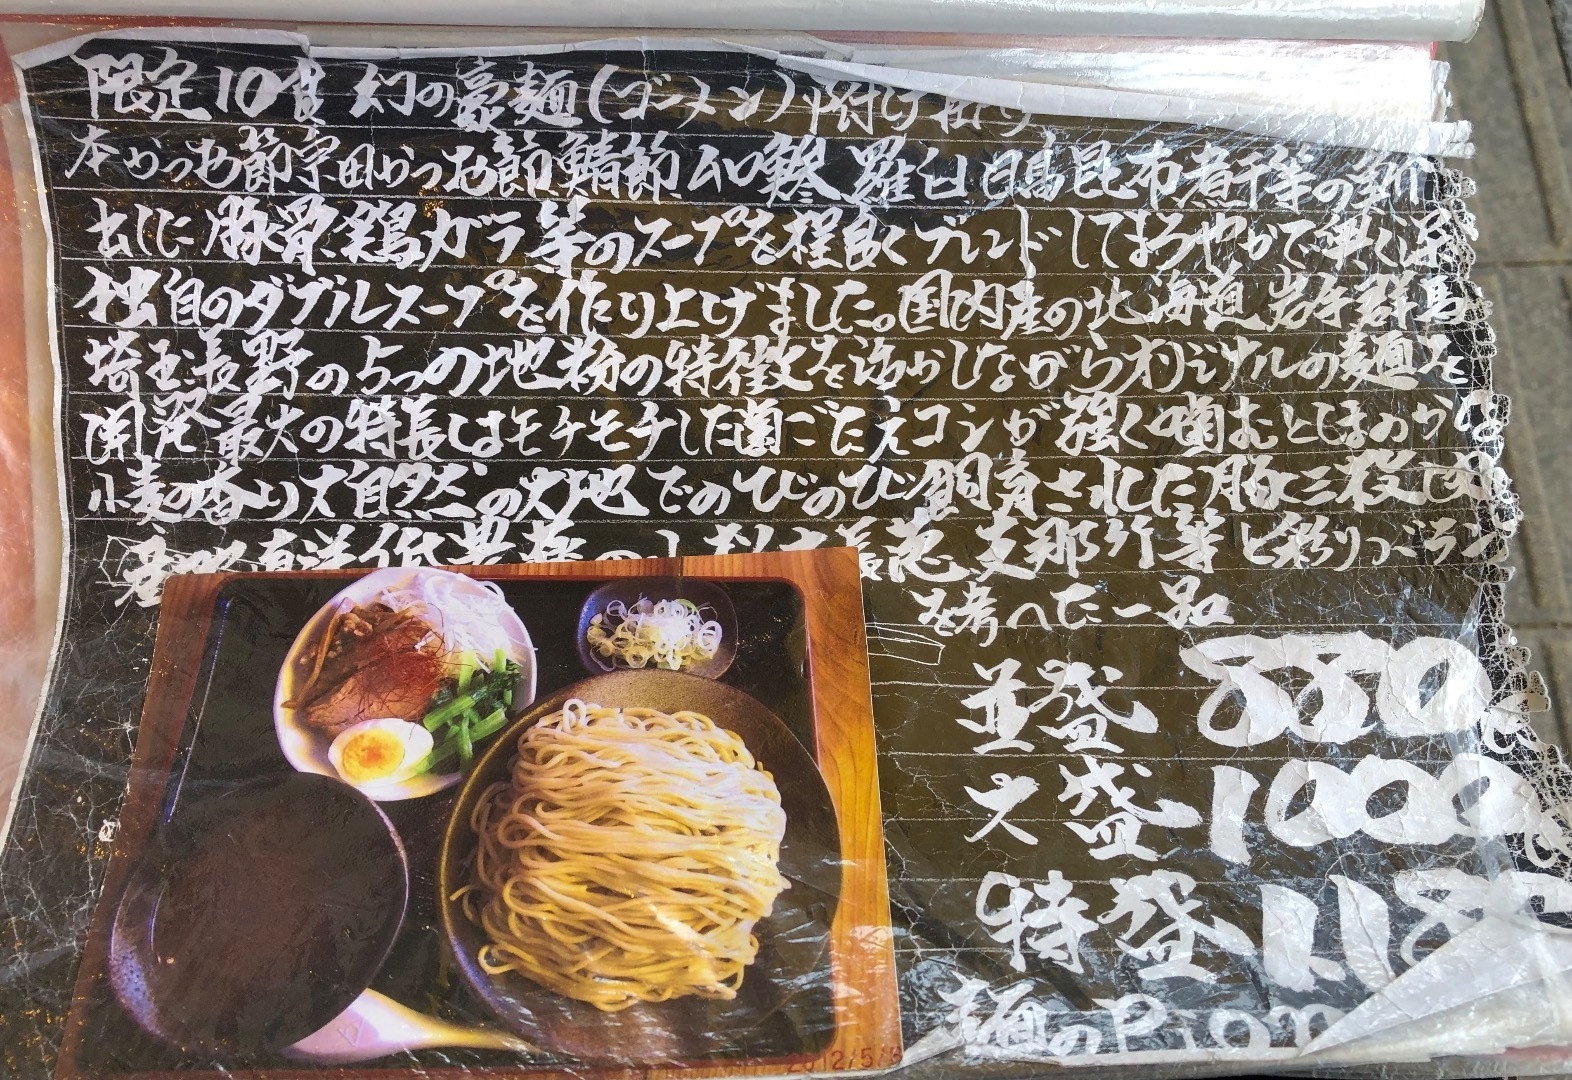 限定10食 幻の豪麺(ゴーメン)付け
本かつお節宗田かつお節鯖節ムロ鯵羅臼日高昆布煮干等の
出しに豚骨鶏ガラ等のスープを程良くブレンドしてまろやかで
独自のダブルスープを作り上げました。国内産の北海道岩手群馬
埼玉長野の5つの地粉の特徴を活かしながらオリジナルの麺を
開発最大の特長はモチモチした歯ごたえコシが強く噛むと
小麦の香り大自然の大地でのびのび飼育された豚三枚
支那竹等と彩りバラン
を考へた一品
並盛 880
大盛 1000
特盛
麺の
2012/5/8